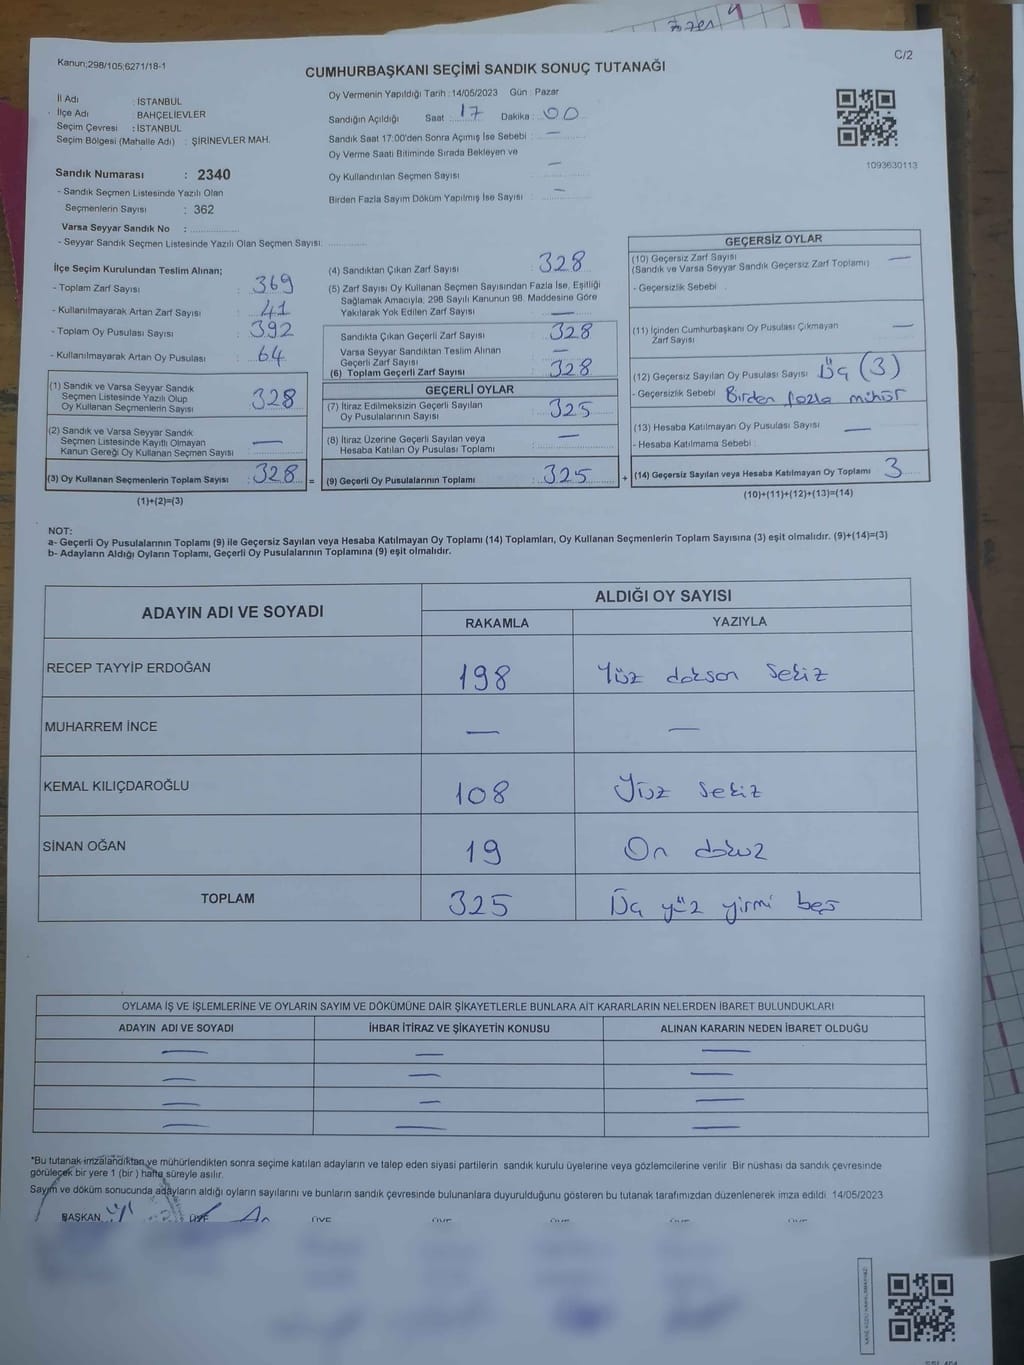 Kanun;298/105;6271/18-1
C/2
CUMHURBAŞKANI SEÇİMİ SANDIK SONUÇ TUTANAĞI
İl Adı : İSTANBUL
İlçe Adı : BAHÇELİEVLER
Seçim Çevresi : İSTANBUL
Seçim Bölgesi (Mahalle Adı) : ŞİRİNEVLER MAH.
Oy Vermenin Yapıldığı Tarih : 14/05/2023 Gün : Pazar
Sandığın Açıldığı Saat : 17 Dakika : 00
Sandık Saat 17:00'den Sonra Açımış İse Sebebi : —
Oy Verme Saati Bitiminde Sırada Bekleyen ve
Oy Kullandırılan Seçmen Sayısı —
Birden Fazla Sayım Döküm Yapılmış İse Sayısı : —
1093630113
Sandık Numarası : 2340
- Sandık Seçmen Listesinde Yazılı Olan
Seçmenlerin Sayısı : 362
Varsa Seyyar Sandık No :
- Seyyar Sandık Seçmen Listesinde Yazılı Olan Seçmen Sayısı:
İlçe Seçim Kurulundan Teslim Alınan;
- Toplam Zarf Sayısı : 369
- Kullanılmayarak Artan Zarf Sayısı : 41
- Toplam Oy Pusulası Sayısı : 392
- Kullanılmayarak Artan Oy Pusulası : 64
(1) Sandık ve Varsa Seyyar Sandık
Seçmen Listesinde Yazılı Olup
Oy Kullanan Seçmenlerin Sayısı 328
(2) Sandık ve Varsa Seyyar Sandık
Seçmen Listesinde Kayıtlı Olmayan
Kanun Gereği Oy Kullanan Seçmen Sayısı —
(3) Oy Kullanan Seçmenlerin Toplam Sayısı : 328 =
(1)+(2)=(3)
(4) Sandıktan Çıkan Zarf Sayısı : 328
(5) Zarf Sayısı Oy Kullanan Seçmen Sayısından Fazla İse, Eşitliği
Sağlamak Amacıyla, 298 Sayılı Kanunun 98. Maddesine Göre
Yakılarak Yok Edilen Zarf Sayısı : —
Sandıkta Çıkan Geçerli Zarf Sayısı : 328
Varsa Seyyar Sandıktan Teslim Alınan
Geçerli Zarf Sayısı —
(6) Toplam Geçerli Zarf Sayısı : 328
GEÇERLİ OYLAR
(7) İtiraz Edilmeksizin Geçerli Sayılan
Oy Pusulalarının Sayısı : 325
(8) İtiraz Üzerine Geçerli Sayılan veya
Hesaba Katılan Oy Pusulası Toplamı —
(9) Geçerli Oy Pusulalarının Toplamı : 325 +
GEÇERSİZ OYLAR
(10) Geçersiz Zarf Sayısı —
(Sandık ve Varsa Seyyar Sandık Geçersiz Zarf Toplamı)
- Geçersizlik Sebebi :
(11) İçinden Cumhurbaşkanı Oy Pusulası Çıkmayan —
Zarf Sayısı
(12) Geçersiz Sayılan Oy Pusulası Sayısı : Üç (3)
- Geçersizlik Sebebi : Birden fazla mühür
(13) Hesaba Katılmayan Oy Pusulası Sayısı —
- Hesaba Katılmama Sebebi :
(14) Geçersiz Sayılan veya Hesaba Katılmayan Oy Toplamı 3
(10)+(11)+(12)+(13)=(14)
NOT:
a- Geçerli Oy Pusulalarının Toplamı (9) ile Geçersiz Sayılan veya Hesaba Katılmayan Oy Toplamı (14) Toplamları, Oy Kullanan Seçmenlerin Toplam Sayısına (3) eşit olmalıdır. (9)+(14)=(3)
b- Adayların Aldığı Oyların Toplamı, Geçerli Oy Pusulalarının Toplamına (9) eşit olmalıdır.
ADAYIN ADI VE SOYADI
ALDIĞI OY SAYISI
RAKAMLA YAZIYLA
RECEP TAYYİP ERDOĞAN 198 Yüz doksan sekiz
MUHARREM İNCE — —
KEMAL KILIÇDAROĞLU 108 Yüz sekiz
SİNAN OĞAN 19 On dokuz
TOPLAM 325 Üç yüz yirmi beş
OYLAMA İŞ VE İŞLEMLERİNE VE OYLARIN SAYIM VE DÖKÜMÜNE DAİR ŞİKAYETLERLE BUNLARA AİT KARARLARIN NELERDEN İBARET BULUNDUKLARI
ADAYIN ADI VE SOYADI İHBAR İTİRAZ VE ŞİKAYETİN KONUSU ALINAN KARARIN NEDEN İBARET OLDUĞU
— — —
— — —
— — —
— — —
*Bu tutanak imzalandıktan ve mühürlendikten sonra seçime katılan adayların ve talep eden siyasi partilerin sandık kurulu üyelerine veya gözlemcilerine verilir. Bir nüshası da sandık çevresinde
görülecek bir yere 1 (bir) hafta süreyle asılır.
Sayım ve döküm sonucunda adayların aldığı oyların sayılarını ve bunların sandık çevresinde bulunanlara duyurulduğunu gösteren bu tutanak tarafımızdan düzenlenerek imza edildi 14/05/2023
BAŞKAN ÜYE ÜYE ÜYE ÜYE ÜYE ÜYE